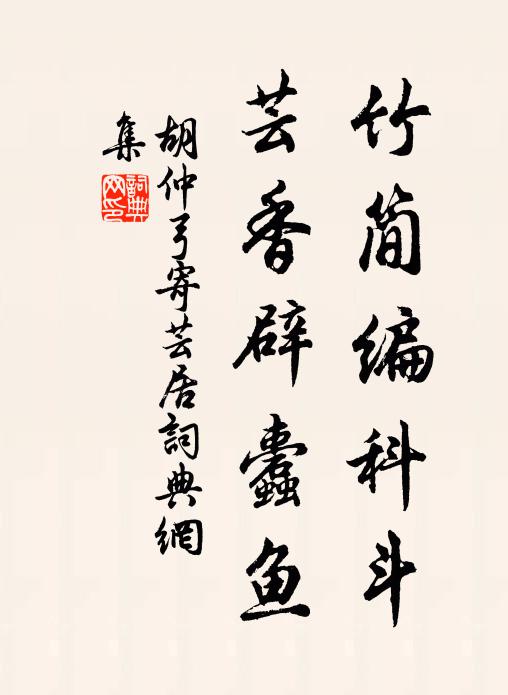 竹简编科斗
芸香辟蠹鱼
胡仲弓寄芸居詞典網
集
詞典
网印